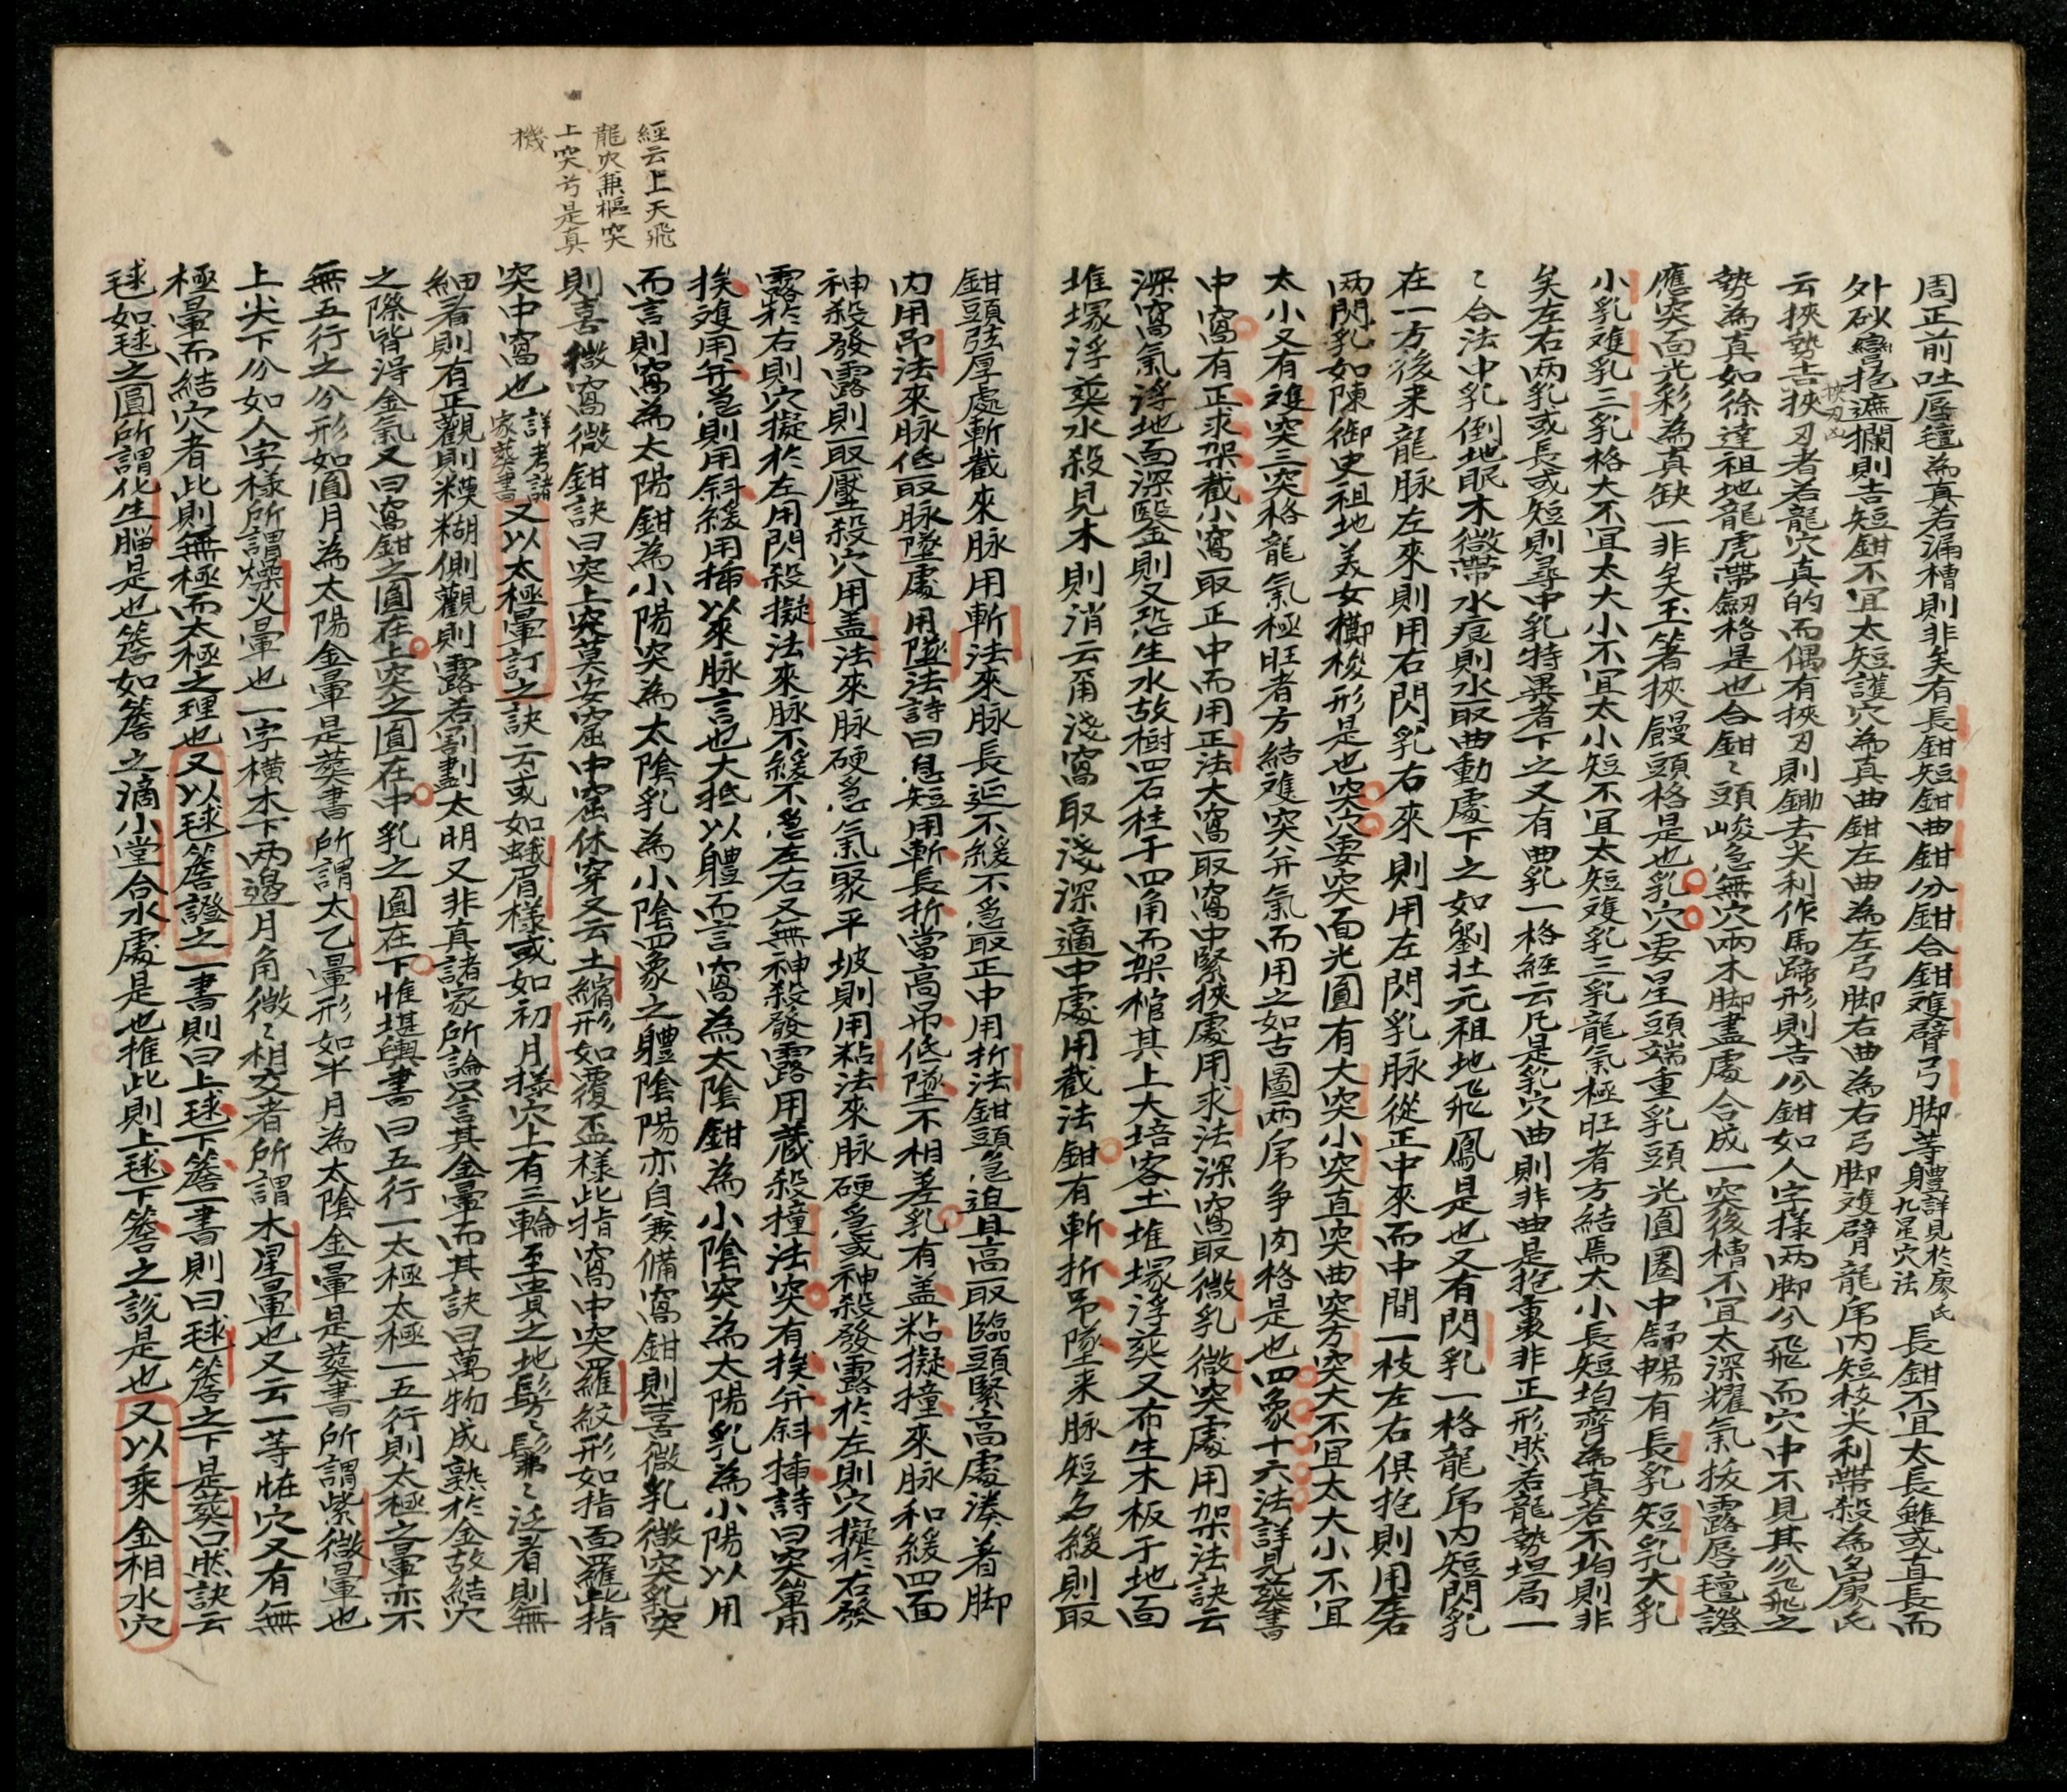 周正前吐唇氊為真若漏槽則非矣有長鉗短鉗曲鉗分鉗合鉗雙臂弓脚等軆詳見於廖氏九星穴法長鉗不宜太長雖或直長而
外砂彎抱遮攔則吉短鉗不宜太短護穴為真曲鉗左曲為左弓脚右曲為右弓脚雙臂龍虎內短枝尖利帶殺為凶廖氏
云挾勢吉挾刃者若龍穴真的而偶有挾刃則鋤去尖利作馬蹄形則吉分鉗如人字様两脚分飛而穴中不見其分飛之
挾刃凶
勢為真如徐達祖地龍虎帶劒格是也合鉗〻頭峻急無穴兩木脚盡處合成一突後槽不宜太深耀氣挨露唇氊證
應突面光彩為真缺一非矣玉箸挾饅頭格是也乳穴要星頭端重乳頭光圓圈中舒暢有長乳短乳大乳
小乳雙乳三乳格大不宜太大小不宜太小短不宜太短雙乳三乳龍氣極旺者方結焉太小長短均齊為真若不均則非
矣左右两乳或長或短則尋中乳特異者下之又有曲乳一格經云凡是乳穴曲則非曲是抱裹非正形然若龍勢垣局一
〻合法中乳倒地眠木微帶水痕則水取曲動處下之如劉壮元祖地飛鳳是也又有閃乳一格龍虎內短閃乳
在一方後来龍脉左來則用右閃乳右來則用左閃乳脉從正中來而中間一枝左右俱抱則用左右
两閃乳如陳御史祖地美女擲梭形是也突穴要突面光圓有大突小突直突曲突方突大不宜太大小不宜
太小又有雙突三突格龍氣極旺者方結雙突并氣而用之如古圖两虎争肉格是也四象十六法詳見葬書
中窩有正求架截小窩取正中而用正法大窩取窩中緊挾處用求法深窩取微乳微突處用架法訣云
深窩氣浮地面深鑿則又恐生水故樹四石柱于四角而架棺其上大培客土堆塚浮葬又布生木板于地面
堆塚浮葵水殺見木則消云甬淺窩取淺深適中處用截法鉗有斬折吊墜来脉短名緩則取
鉗頭弦厚處斬截來脉用斬法來脉長延不緩不急取正中用折法鉗頭急迫且高取臨頭緊高處湊着脚
內用吊法來脉低取脉墜處用墜法詩曰急短用斬長折當高吊低墜不相差乳有盖粘擬撞來脉和緩四面
神殺發露則取壓殺穴用盖法來脉硬急氣聚平坡則用粘法來脉硬急或神殺發露於左則穴擬於右發
露於右則穴擬於左用閃殺擬法來脉不緩不急左右又無神殺發露用藏殺撞法突有挨并斜揷詩曰突单用
挨雙用并急則用斜緩用揷以來脉言也大抵以軆而言窩為太陰鉗為小陰突為太陽乳為小陽以用
而言則窩為太陽鉗為小陽突為太陰乳為小陰四象之軆陰陽亦自兼備窩鉗則喜微乳微突乳突
則喜微窩微鉗訣曰突上突莫安窟中窟休穿又云土縮形如覆盃樣此指窩中突羅紋形如指面羅此指
突中窩也詳考諸家葬書又以太極暈訂之訣云或如蛾眉樣或如初月樣穴上有三輪至貴之地髣〻髴〻泛看則無
細看則有正觀則糢糊側觀則露若割劃太明又非真諸家所論只言其金暈而其訣曰萬物成熟於金故結穴
之際皆得金氣又曰窩鉗之圓在上突之圓在中乳之圓在下惟堪輿書曰五行一太極太極一五行則太極之暈亦不
無五行之分形如圓月為太陽金暈是葬書所謂太乙暈形如半月為太陰金暈是葬書所謂紫微暈也
上尖下分如人字様所謂燥火暈也一字橫木下两邉月角微〻相交者所謂木星暈也又云一等恠穴又有無
極暈而結穴者此則無極而太極之理也又以毬簷證之一書則曰上毬下簷一書則曰毬簷之下是葬口然訣云
毬如毬之圓所謂化生腦是也簷如簷之滴小堂合水處是也推此則上毬下簷之說是也又以乘金相水穴
經云上天飛
龍穴兼樞突
上突兮是真
機